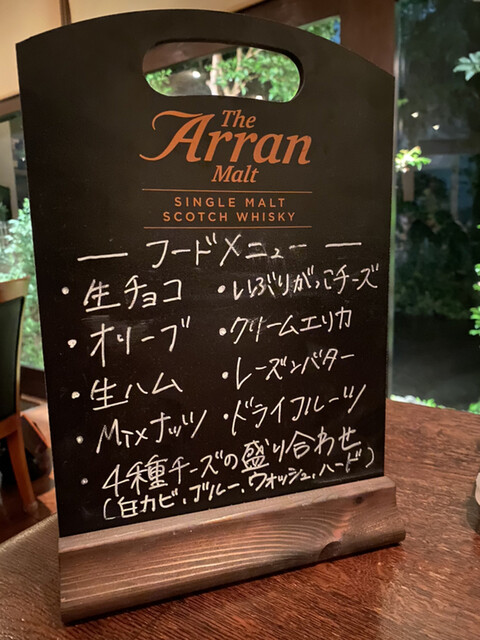 The
Arran
Malt
SINGLE MALT
SCOTCH WHISKY
― フードメニュー ―
・生チョコ ・いぶりがっこチーズ
・オリーブ ・クリームエリカ
・生ハム ・レーズンバター
・Mixナッツ ・ドライフルーツ
・4種チーズの盛り合わせ
(白カビ、ブルー、ウォッシュ、ハード)